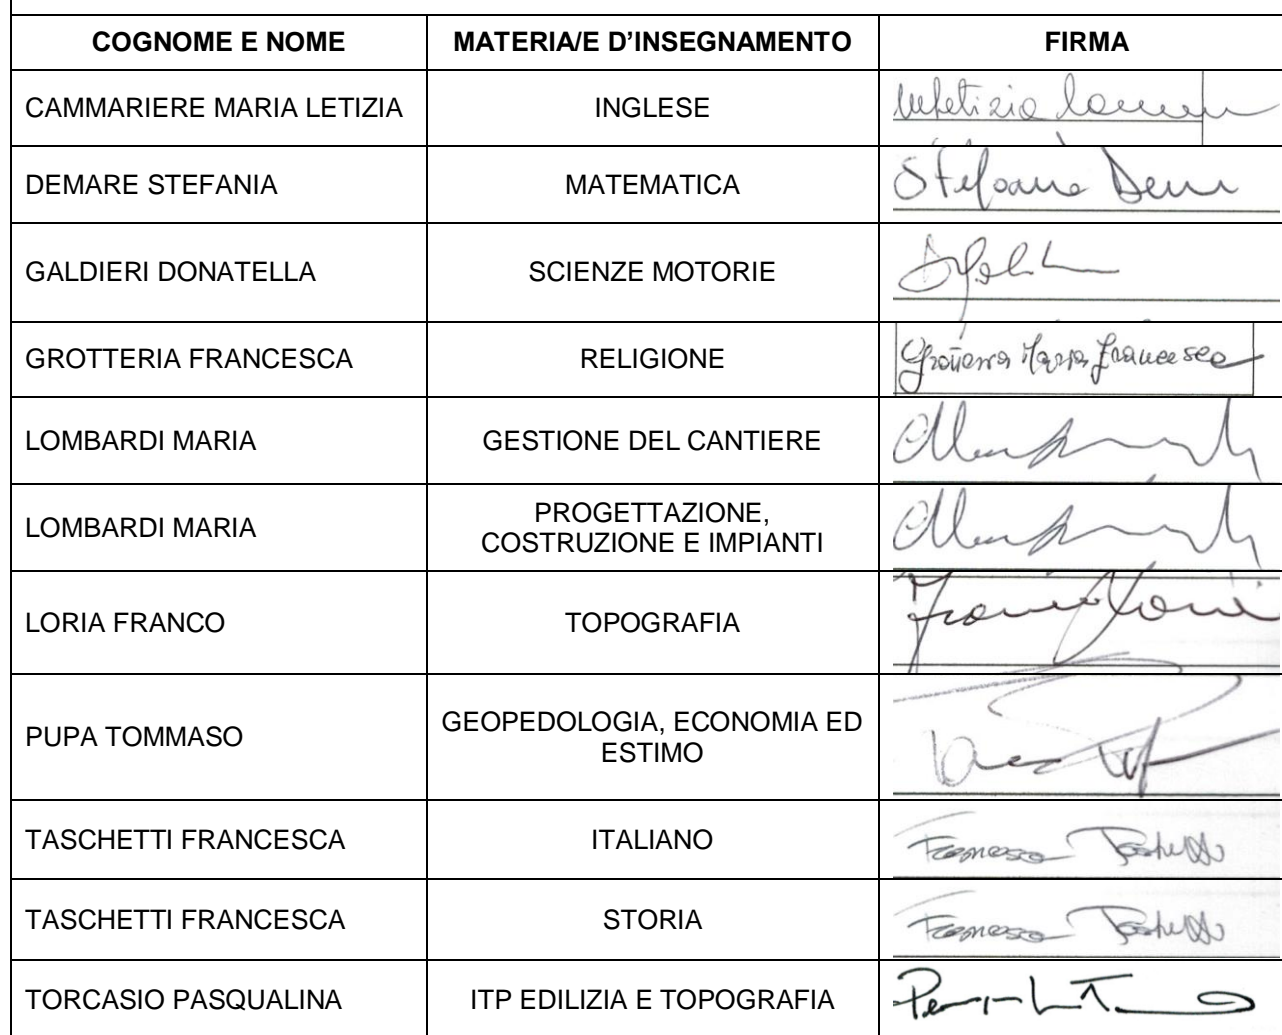 COGNOME E NOME MATERIA/E D'INSEGNAMENTO FIRMA
CAMMARIERE MARIA LETIZIA INGLESE
DEMARE STEFANIA MATEMATICA Stefania
GALDIERI DONATELLA SCIENZE MOTORIE
GROTTERIA FRANCESCA RELIGIONE Grotteria Maria Francesca
LOMBARDI MARIA GESTIONE DEL CANTIERE
LOMBARDI MARIA PROGETTAZIONE,
COSTRUZIONE E IMPIANTI
LORIA FRANCO TOPOGRAFIA Franco Loria
PUPA TOMMASO GEOPEDOLOGIA, ECONOMIA ED
ESTIMO
TASCHETTI FRANCESCA ITALIANO Francesca Taschetti
TASCHETTI FRANCESCA STORIA Francesca Taschetti
TORCASIO PASQUALINA ITP EDILIZIA E TOPOGRAFIA